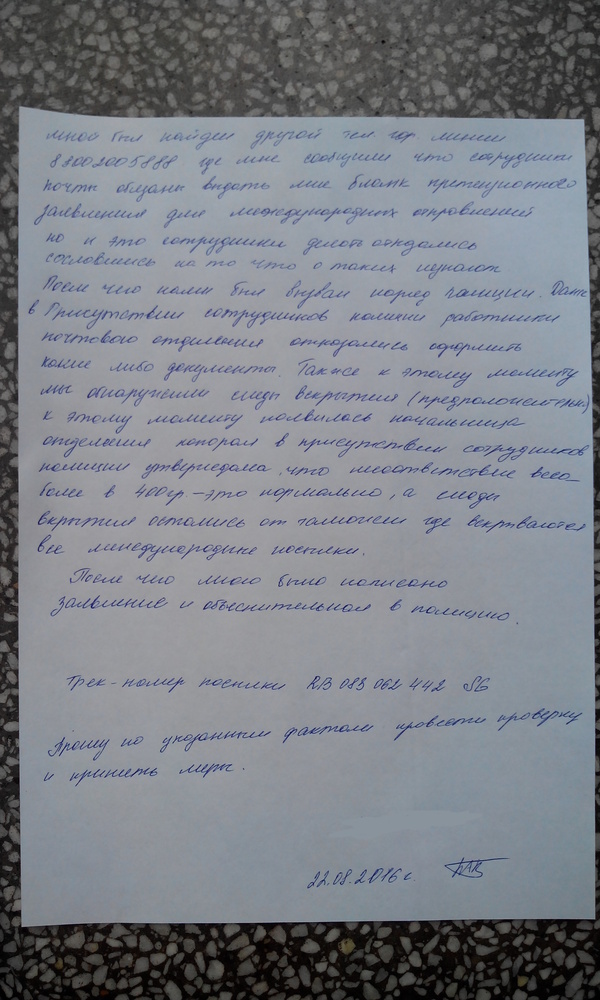 мной был найден другой тел. гор. линии
88002005888 где мне сообщили что сотрудники
почты обязаны выдать мне бланк претензионного
заявления для международных отправлений
но и это сотрудники делать отказались
сославшись на то что о таких незнают
После чего нами был вызван наряд полиции. Даже
в Присутствии сотрудников полиции работники
почтового отделения отказались оформить
какие либо документы. Также к этому моменту
мы обнаружили следы вскрытия (предположительно)
к этому моменту появилась начальница
отделения которая в присутствии сотрудников
полиции утверждала, что несоответствие веса
более в 400гр - это нормально, а следы
вкрытия остались от таможни где вскрываются
все международные посылки.
После чего мною было написано
Заявление и объяснительная в полицию.
Трек-номер посылки RB 083 062 442 SG
Прошу по указанным фактам провести проверку
и принять меры.
22.08.2016 г.